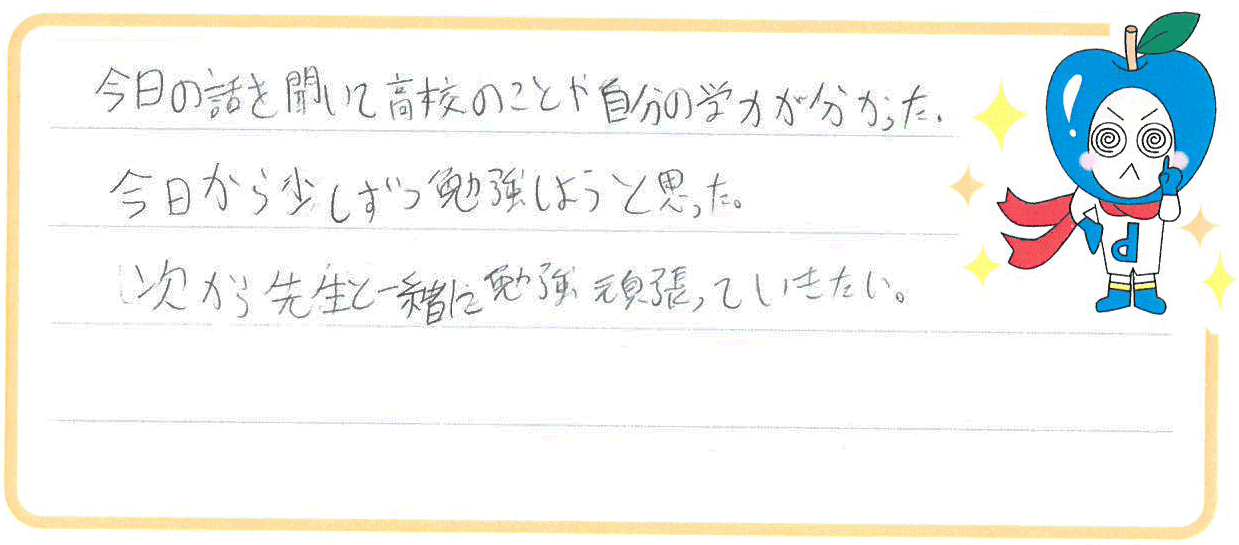 今日の話を聞いて高校のことや自分の学力が分かった。
今日から少しずつ勉強しようと思った。
次から先生と一緒に勉強頑張っていきたい。